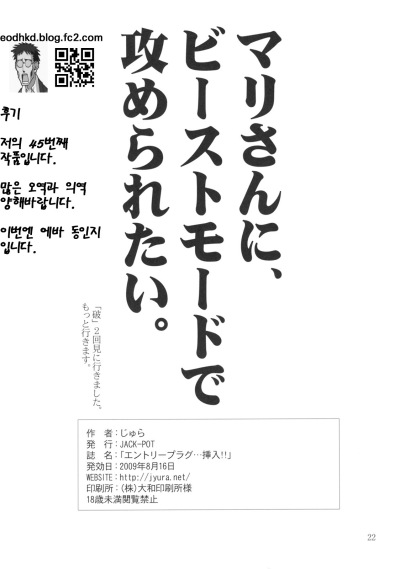 eodhkd.blog.fc2.com
후기
저의 45번째
작품입니다.
많은 오역과 의역
양해바랍니다.
이번엔 에바 동인지
입니다.
マリさんに、
ビーストモードで
攻められたい。
「破」2回見に行きました。
もっと行きます。
作 者：じゅら
発 行：JACK-POT
誌 名：「エントリープラグ…挿入!!」
発効日：2009年8月16日
WEBSITE：http://jyura.net/
印刷所：(株)大和印刷所様
18歳未満閲覧禁止
22